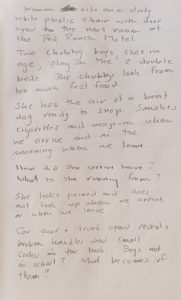 Woman sits on a dirty
white plastic chair with door
open to the next room at
the Red Ranch Motel.
Two chubby boys, close in
age, play on the 2 double
beds. The chubby look from
too much fast food.
She has the air of a beat
dog ready to snap. Smokes
cigarettes and marijuana when
we arrive and in the
morning when we leave.
How did she arrive here?
What is she running from?
She looks pained and does
not look up when we arrive
or when we leave
Car door + trunk open reveals
broken handles and small
cooler in the trunk. Boys not
in school? What becomes of
them?